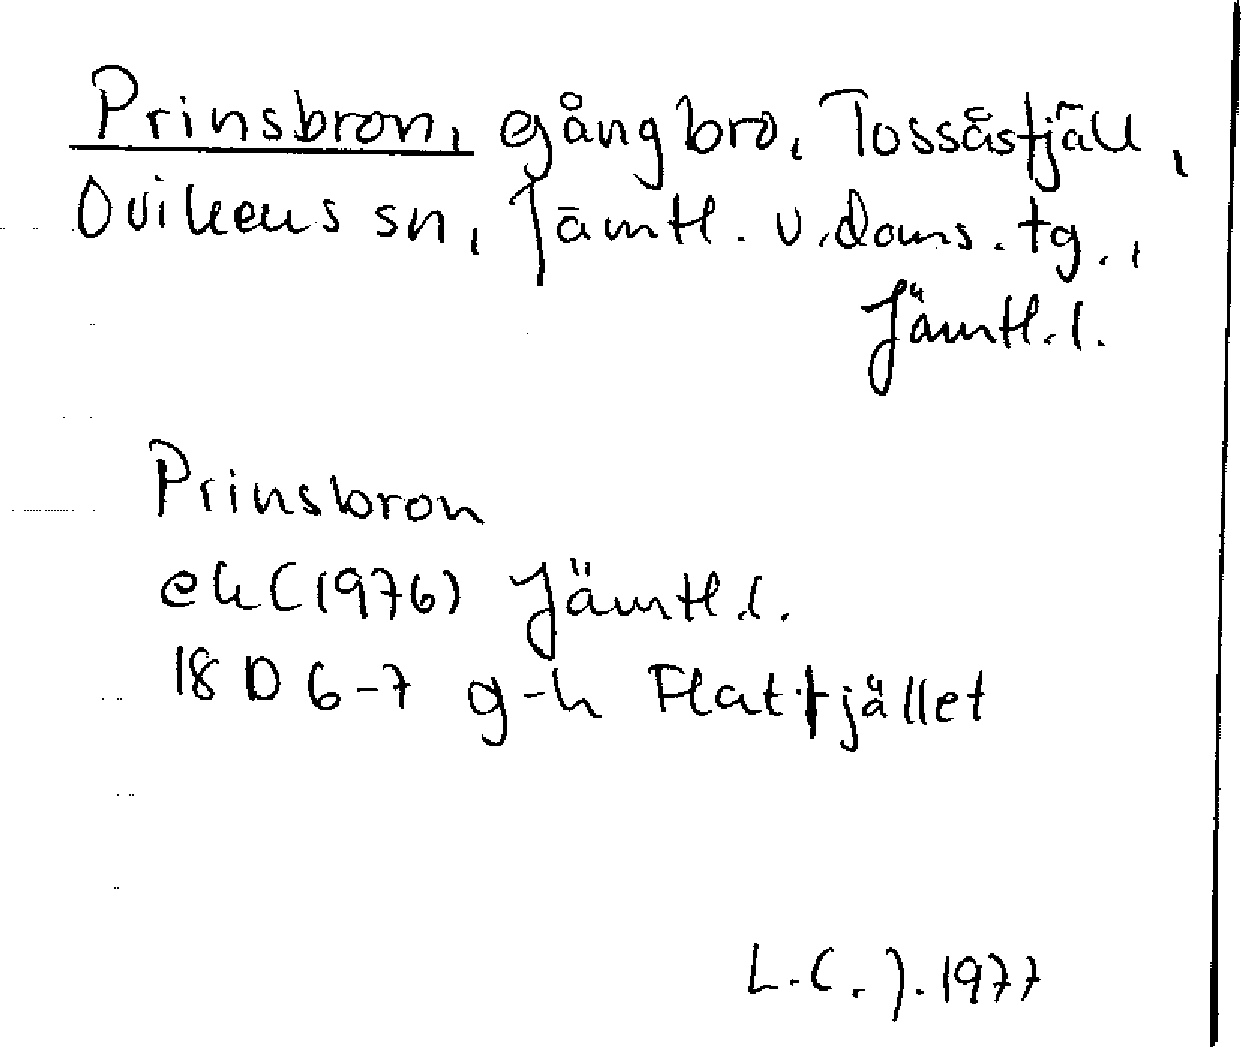 Prinsbron, gångbro, Tossåsfjäll,
Ovikens sn, Jämtl. v. doms. tg.,
Jämtl. l.
Prinsbron
ek (1976) Jämtl l.
18 D 6-7 g-h Flatfjället
L.C.J. 1977